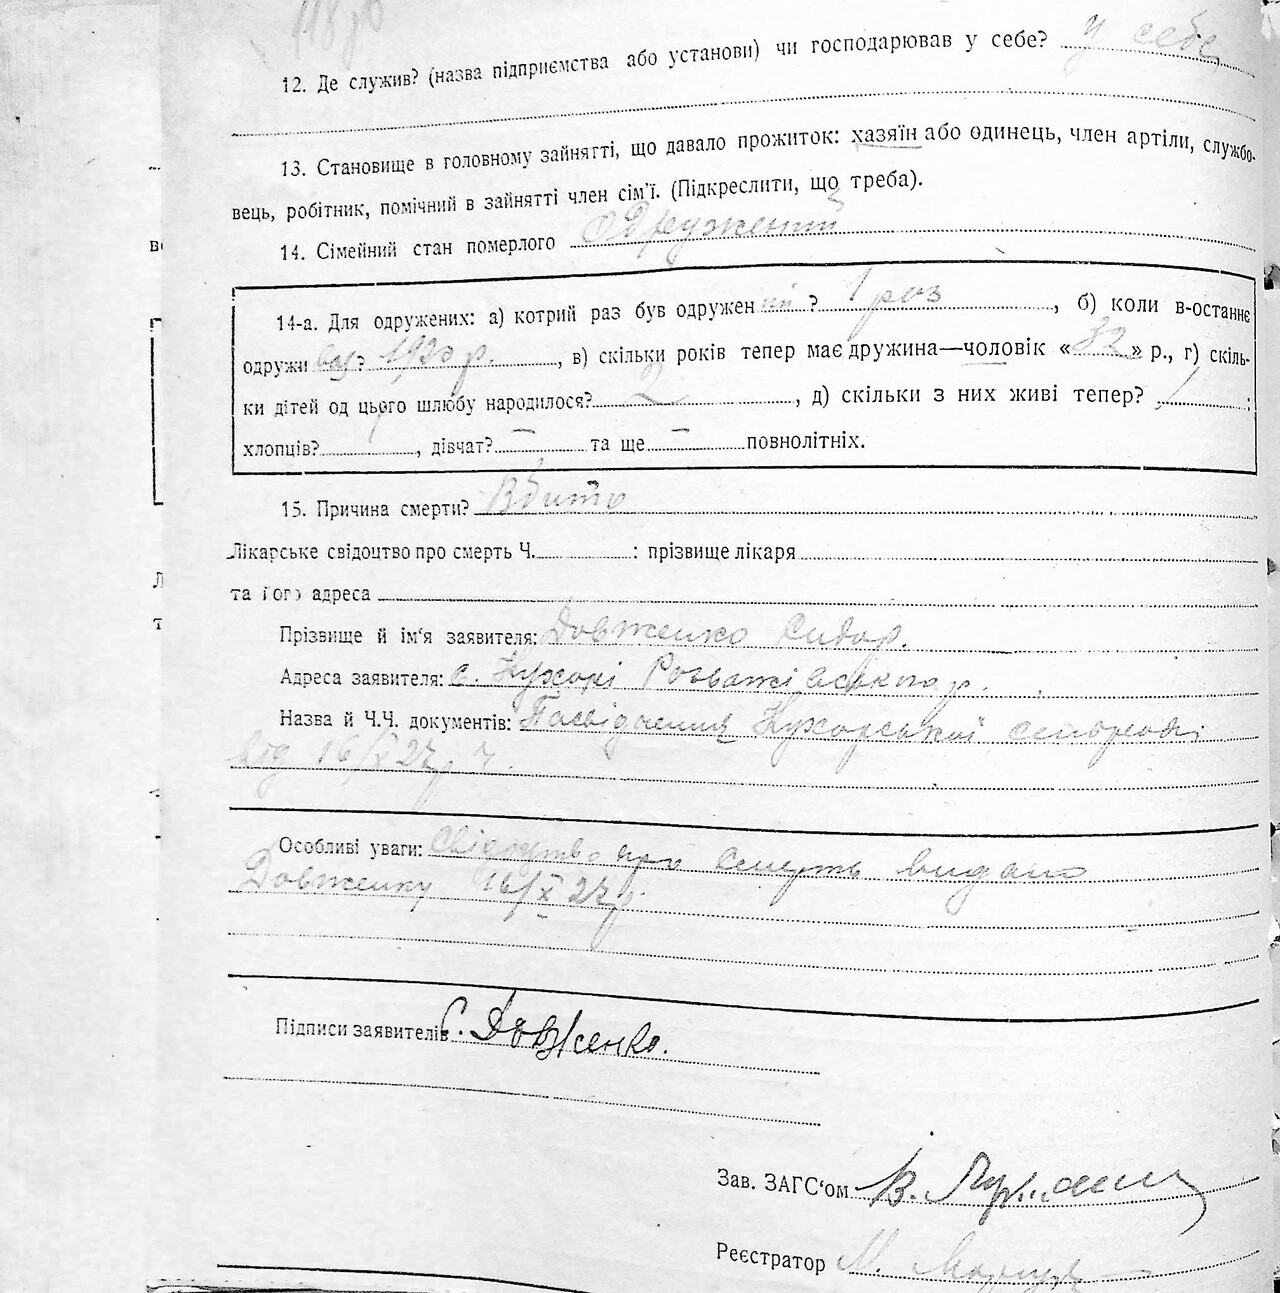 118 зв
12. Де служив? (назва підприємства або установи) чи господарював у себе? у себе
13. Становище в головному зайнятті, що давало прожиток: хазяїн або одинець, член артіли, службо-
вець, робітник, помічний в зайнятті член сім'ї. (Підкреслити, що треба).
14. Сімейний стан померлого одружений
14-а. Для одружених: а) котрий раз був одружен ий ? 1 раз, б) коли в-останнє
одружи вся? 1920 р., в) скільки років тепер має дружина—чоловік «32» р., г) скіль-
ки дітей од цього шлюбу народилося? 2, д) скільки з них живі тепер? 1;
хлопців? 1, дівчат? — та ще — повнолітніх.
15. Причина смерти? Вбито
Лікарське свідоцтво про смерть Ч. : прізвище лікаря
та його адреса
Прізвище й ім'я заявителя: Довженко Сидор.
Адреса заявителя: с. Кухарі Розважівського р.
Назва й Ч.Ч. документів: Посвідчення Кухарської сельради
від 16/X 27 р.
Особливі уваги: Свідоцтво про смерть видано
Довженку 16/X 27 р.
Підписи заявителів С. Довженко.
Зав. ЗАГС'ом В.
Реєстратор М.